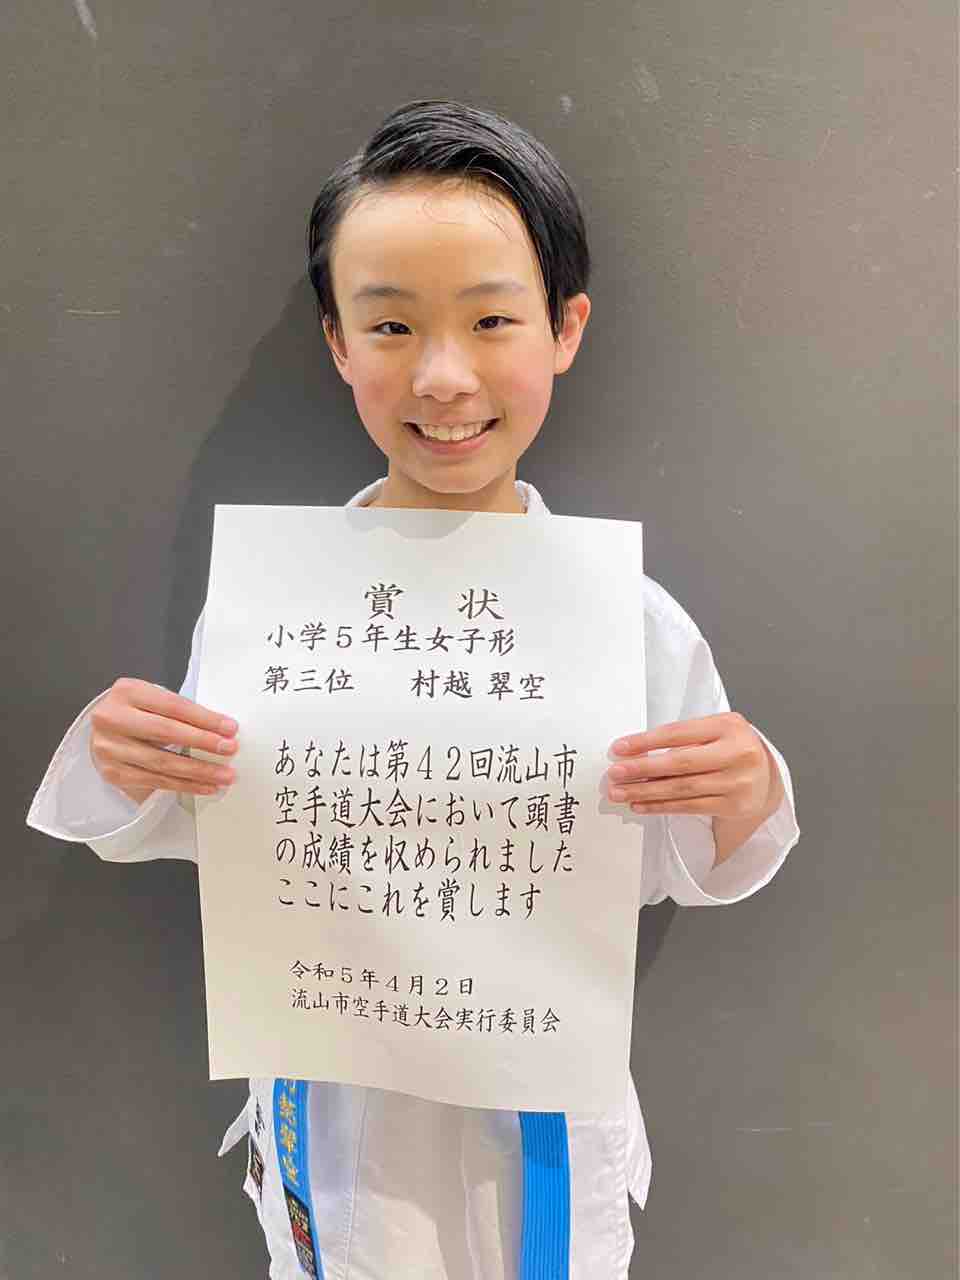 賞 状
小学5年生女子形
第三位 村越 翠空
あなたは第42回流山市
空手道大会において頭書
の成績を収められました
ここにこれを賞します
令和5年4月2日
流山市空手道大会実行委員会
村越翠空